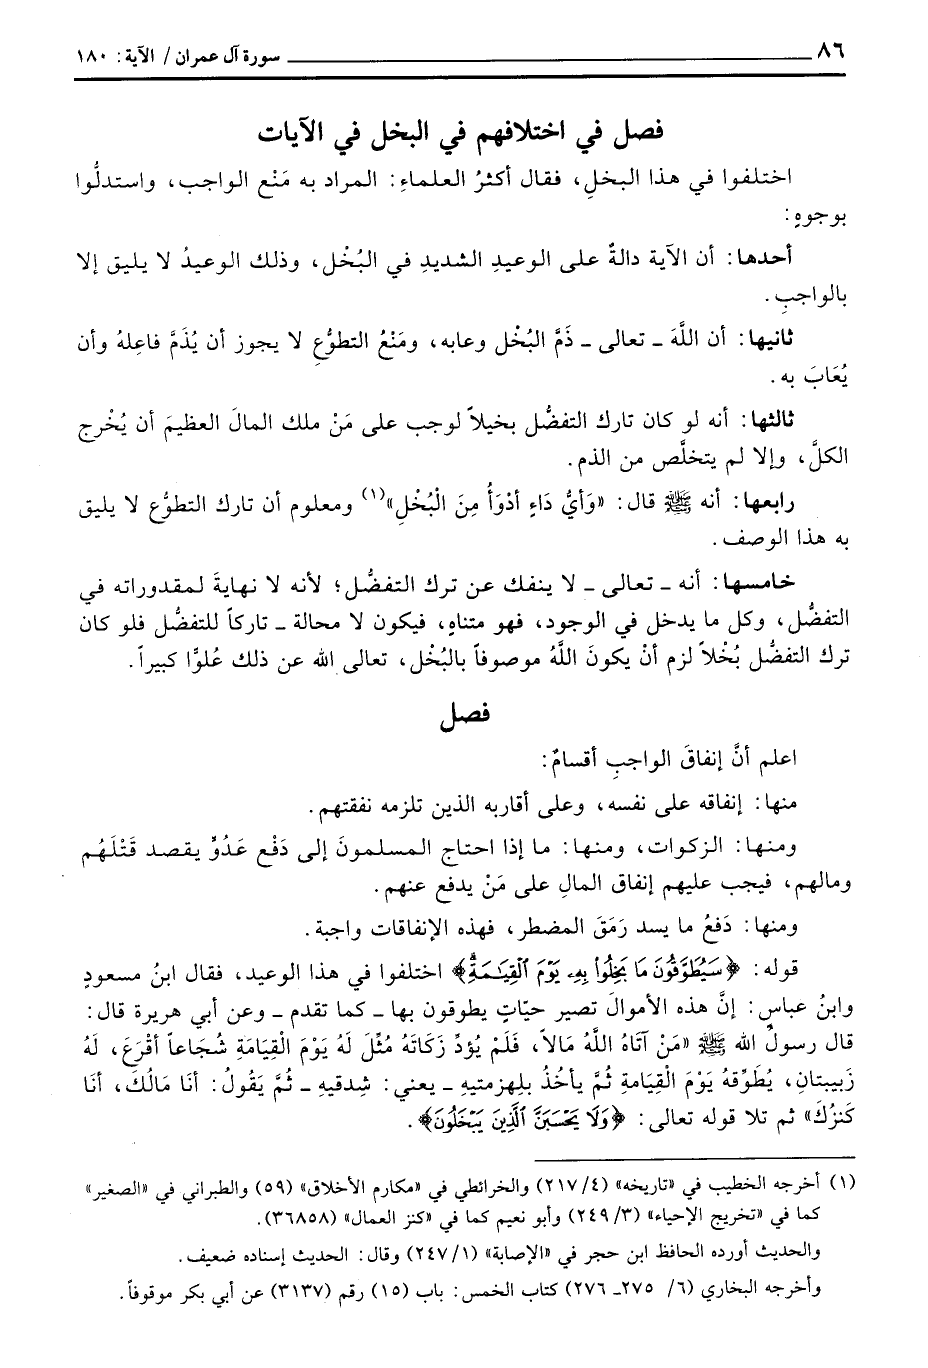 ٨٦ سورة آل عمران / الآية: ١٨٠
فصل في اختلافهم في البخل في الآيات
اختلفوا في هذا البخلِ، فقال أكثرُ العلماءِ: المراد به مَنْع الواجب، واستدلُّوا
بوجوهٍ:
أحدها: أن الآية دالةٌ على الوعيدِ الشديدِ في البُخْل، وذلك الوعيدُ لا يليق إلا
بالواجبِ.
ثانيها: أن اللَّهَ ـ تعالى ـ ذَمَّ البُخْل وعابه، ومَنْعُ التطوُّعِ لا يجوز أن يُذَمَّ فاعِلهُ وأن
يُعَابَ به.
ثالثها: أنه لو كان تارك التفضُّل بخيلاً لوجب على مَنْ ملك المالَ العظيمَ أن يُخْرج
الكلَّ، وإلا لم يتخلَّص من الذم.
رابعها: أنه ﷺ قال: «وَأيُّ دَاءٍ أدْوَأُ مِنَ الْبُخْلِ»(١) ومعلوم أن تارك التطوُّع لا يليق
به هذا الوصف.
خامسها: أنه ـ تعالى ـ لا ينفك عن ترك التفضُّل؛ لأنه لا نهايةَ لمقدوراته في
التفضُّل، وكل ما يدخل في الوجود، فهو متناهٍ، فيكون لا محالة ـ تاركاً للتفضُّل فلو كان
ترك التفضُّل بُخْلاً لزم أنْ يكونَ اللَّهُ موصوفاً بالبُخْل، تعالى الله عن ذلك عُلوًّا كبيراً.
فصل
اعلم أنَّ إنفاقَ الواجبِ أقسامٌ:
منها: إنفاقه على نفسه، وعلى أقاربه الذين تلزمه نفقتهم.
ومنها: الزكوات، ومنها: ما إذا احتاج المسلمونَ إلى دَفْع عَدُوٍّ يقصد قَتْلَهُم
ومالهم، فيجب عليهم إنفاق المالِ على مَنْ يدفع عنهم.
ومنها: دَفعُ ما يسد رَمَقَ المضطر، فهذه الإنفاقات واجبة.
قوله: ﴿سَيُطَوَّقُونَ مَا بَخِلُواْ بِهِۦ يَوْمَ ٱلْقِيَـٰمَةِۗ﴾ اختلفوا في هذا الوعيد، فقال ابنُ مسعودٍ
وابنُ عباسٍ: إنَّ هذه الأموالَ تصير حيّاتٍ يطوقون بها ـ كما تقدم ـ وعن أبي هريرة قال:
قال رسولُ الله ﷺ «مَنْ آتَاهُ اللَّهُ مَالاً، فَلَمْ يُؤدِّ زَكَاتَهُ مُثِّلَ لَهُ يَوْمَ الْقِيَامَةِ شُجَاعاً أقْرَعَ، لَهُ
زَبِيبتانِ، يُطَوِّقهُ يَوْمَ الْقِيَامةِ ثُمَّ يأخُذُ بلِهزمتيهِ ـ يعني: شِدقيهِ ـ ثُمَّ يَقُولُ: أنَا مَالُكَ، أنَا
كَنزُكَ» ثم تلا قوله تعالى: ﴿وَلَا يَحْسَبَنَّ ٱلَّذِينَ يَبْخَلُونَ﴾.
(١) أخرجه الخطيب في «تاريخه» (٢١٧/٤) والخرائطي في «مكارم الأخلاق» (٥٩) والطبراني في «الصغير»
كما في «تخريج الإحياء» (٢٤٩/٣) وأبو نعيم كما في «كنز العمال» (٣٦٨٥٨).
والحديث أورده الحافظ ابن حجر في «الإصابة» (٢٤٧/١) وقال: الحديث إسناده ضعيف.
وأخرجه البخاري (٦/ ٢٧٥ـ ٢٧٦) كتاب الخمس: باب (١٥) رقم (٣١٣٧) عن أبي بكر موقوفاً.